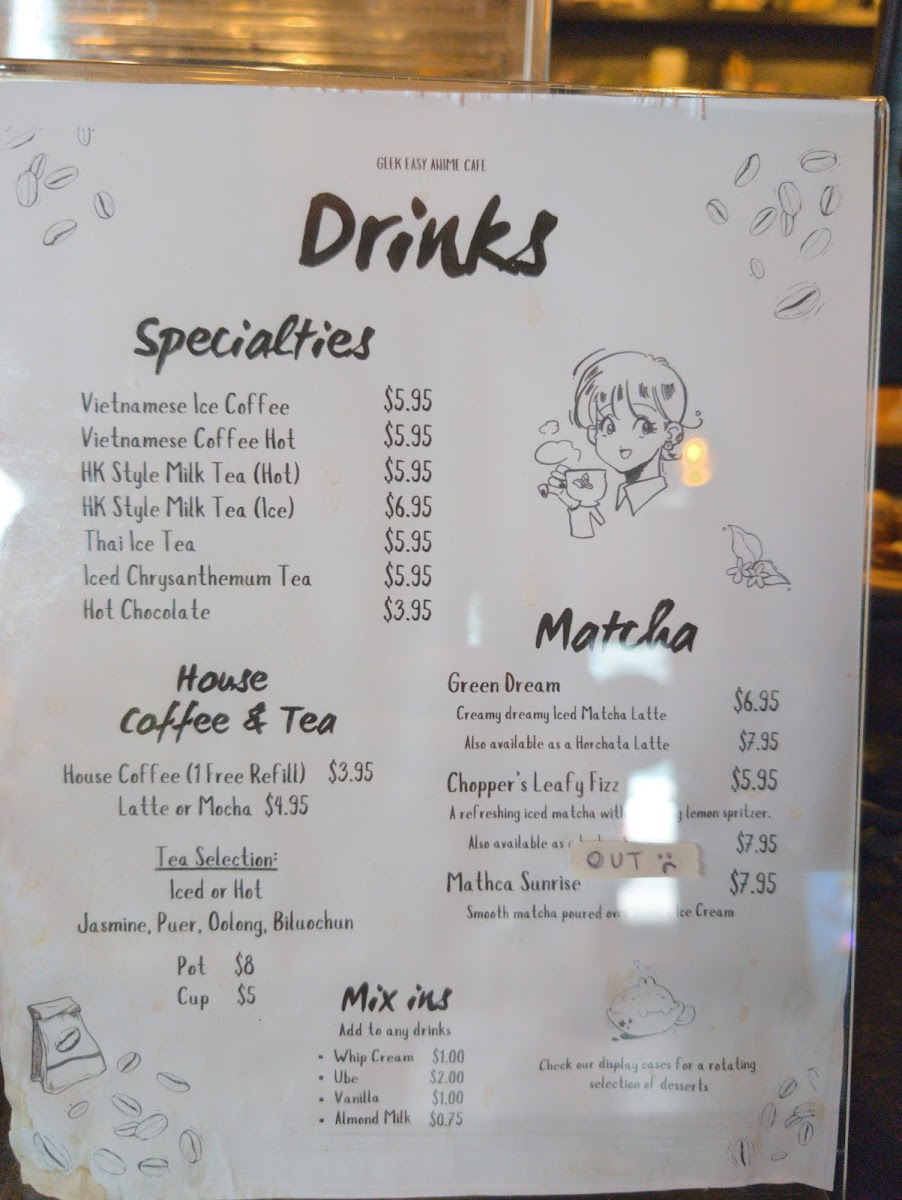 GEEK EASY ANIME CAFE
Drinks
Specialties
Vietnamese Ice Coffee $5.95
Vietnamese Coffee Hot $5.95
HK Style Milk Tea (Hot) $5.95
HK Style Milk Tea (Ice) $6.95
Thai Ice Tea $5.95
Iced Chrysanthemum Tea $5.95
Hot Chocolate $3.95
House
Coffee & Tea
House Coffee (1 Free Refill) $3.95
Latte or Mocha $4.95
Tea Selection:
Iced or Hot
Jasmine, Puer, Oolong, Biluochun
Pot $8
Cup $5
Matcha
Green Dream $6.95
Creamy dreamy Iced Matcha Latte
Also available as a Horchata Latte $7.95
Chopper's Leafy Fizz $5.95
A refreshing iced matcha with lemon spritzer.
Also available as $7.95
OUT :(
Mathca Sunrise $7.95
Smooth matcha poured Ice Cream
Mix ins
Add to any drinks
• Whip Cream $1.00
• Ube $2.00
• Vanilla $1.00
• Almond Milk $0.75
Check our display cases for a rotating
selection of desserts